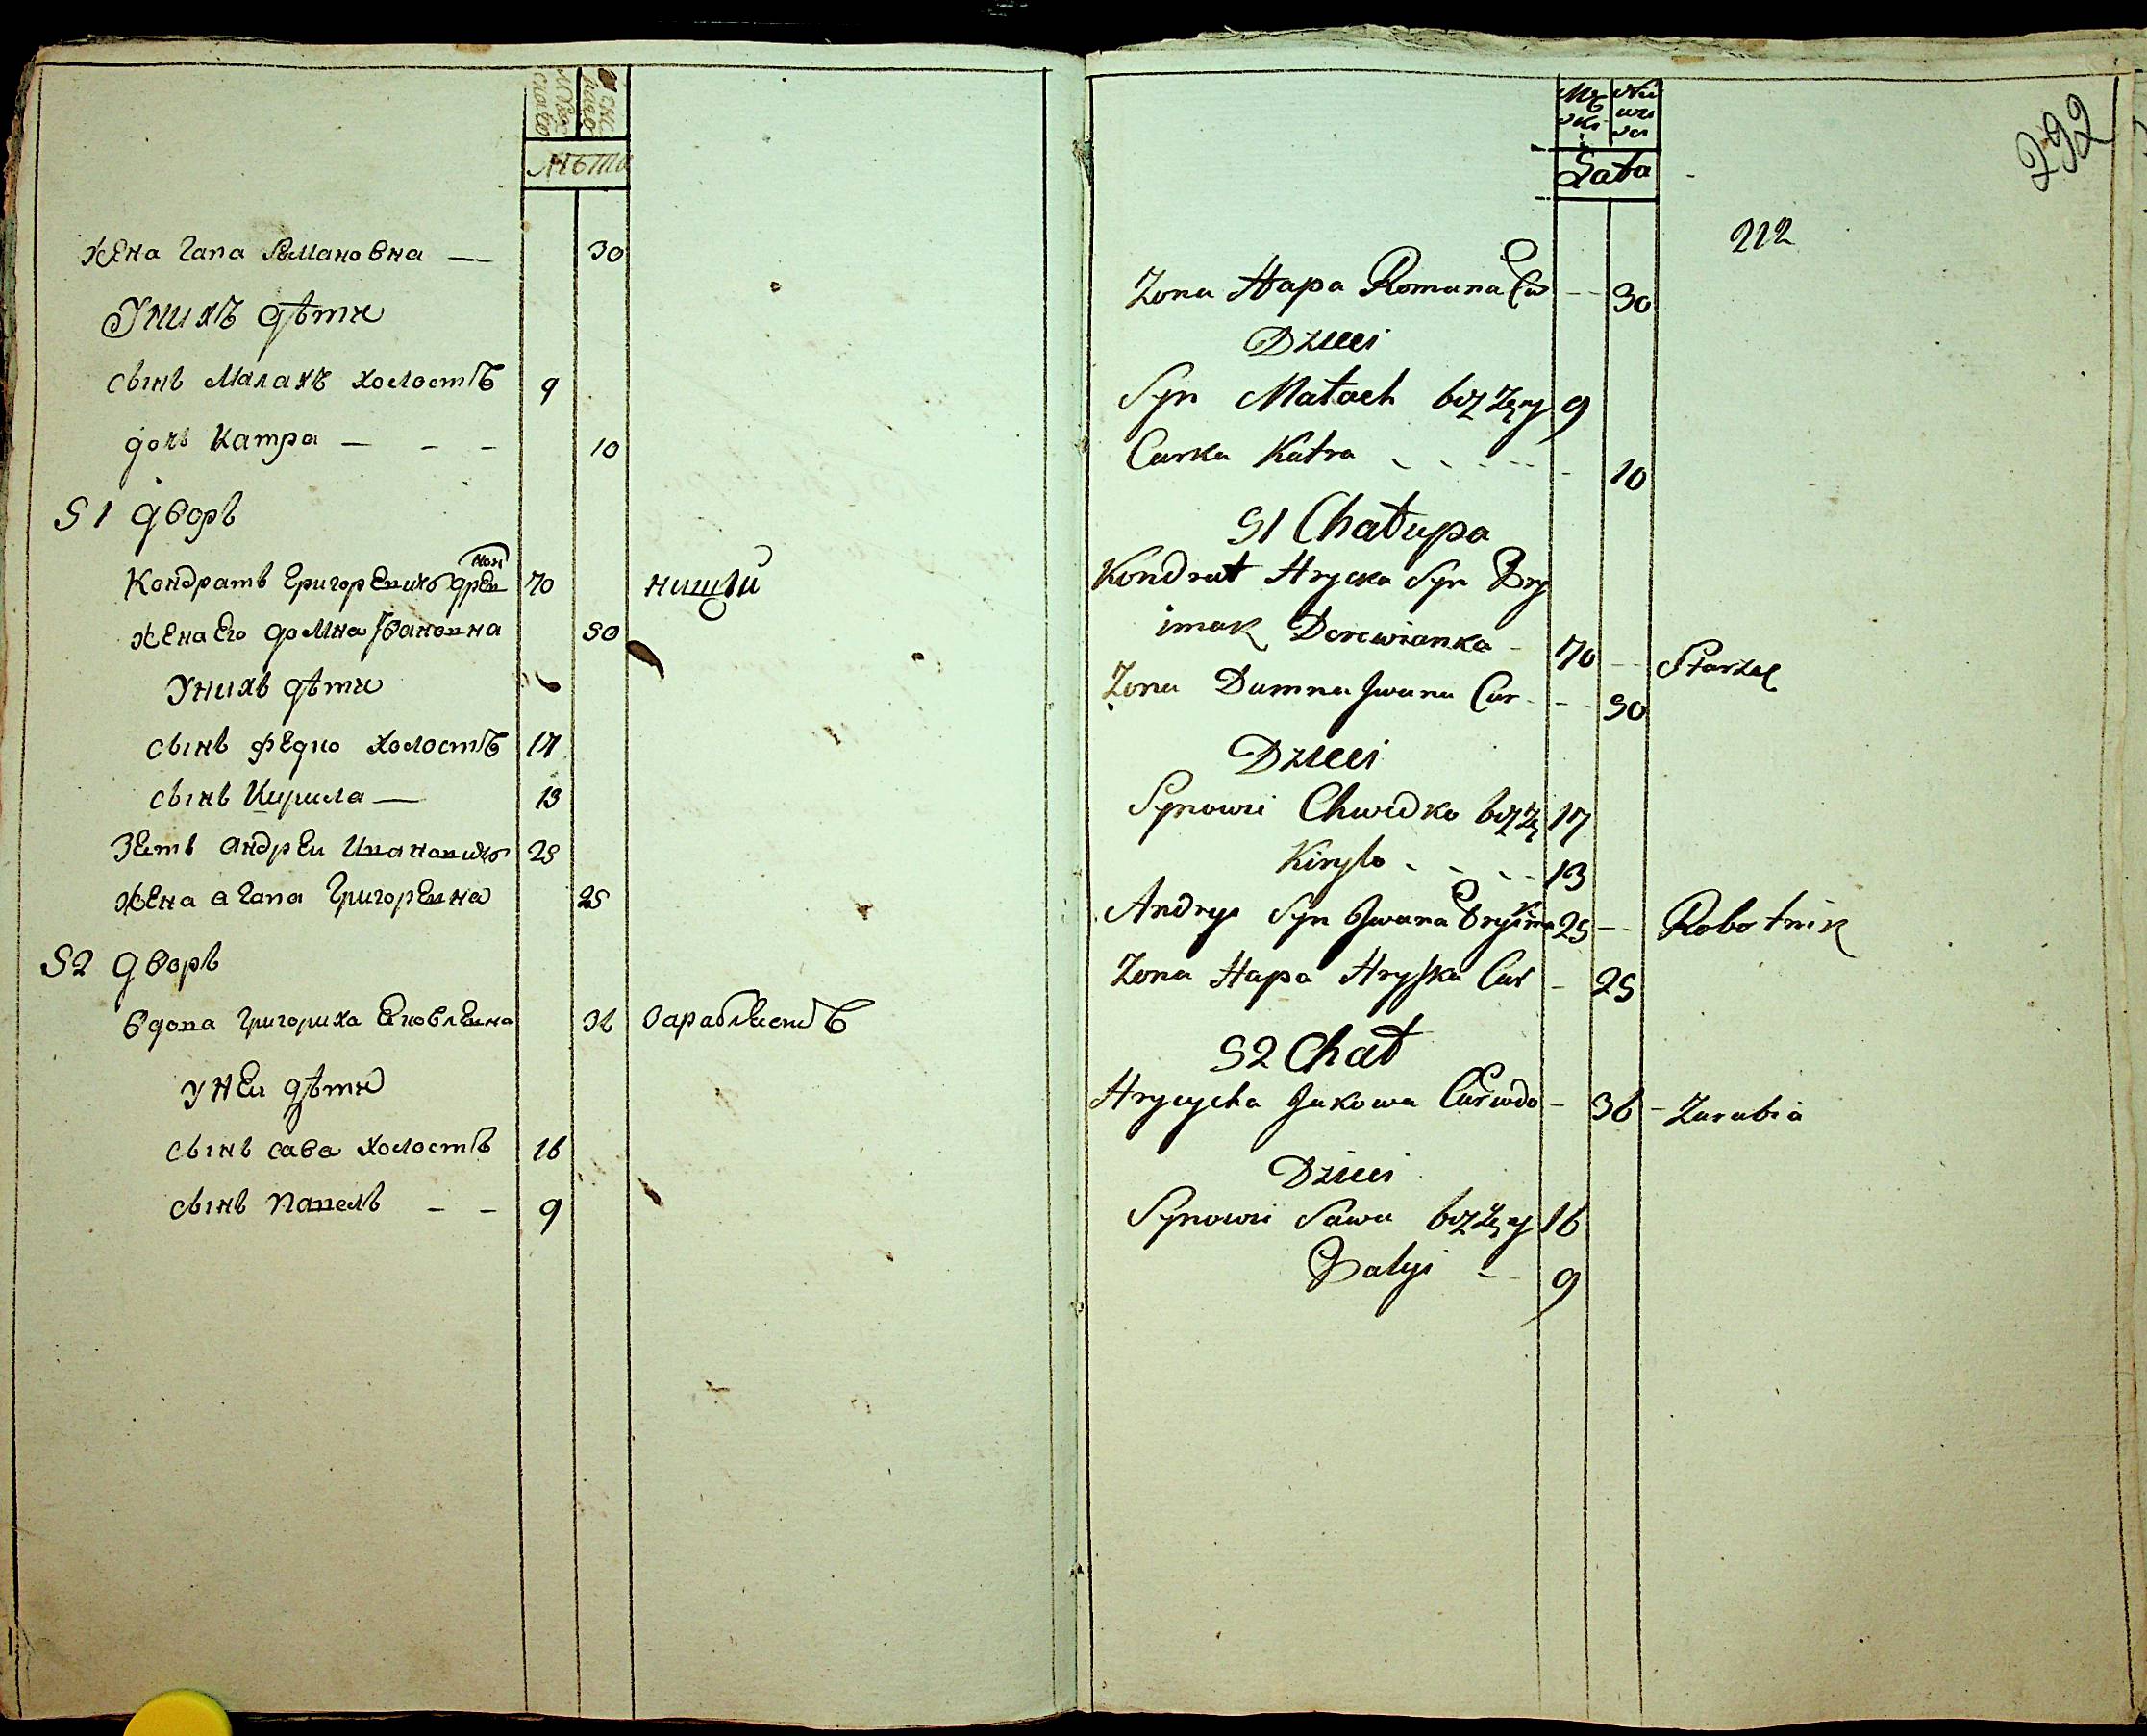 мужеск
женско
лѣты
жена Гапа Романовна — 30
У нихъ дѣти
сынъ Малахъ холостъ 9
дочь Катра — - - 10
51 дворъ
Кондратъ Григоревичъ 70 нищій
жена его Домна Ивановна 50
У нихъ дѣти
сынъ Федко холостъ 17
сынъ Кирила — 13
Зеть андреи Ивановичъ 25
жена агапа Григоревна 25
52 дворъ
вдова Григориха Яковлевна 36 Зараблаетъ
у неи дѣти
сынъ сава холостъ 16
сынъ Павелъ - - 9
292
Lata
212
Zona Hapa Romana Cór -- 30
Dzieci
Syn Małach bez Zęny 9
Curka Katra - - - - - 10
51 Chałupa
Kondrat Hrycka Syn Pry
imak Derewianka - 70 -- Starzec
Zona Dumna Jwana Cur - - 50
Dzieci
Synowi Chwedko bez Zę 17
Kiryło - - - - 13
Andryi Syn Jwana Pryimak 25 -- Robotnik
Zona Hapa Hryśka Cur - 25
52 Chał
Hrycycha Jakowa Cur wdo - 36 - Zarabia
Dzieci
Synowi Sawa bez Zęny 16
Pałyi -- 9